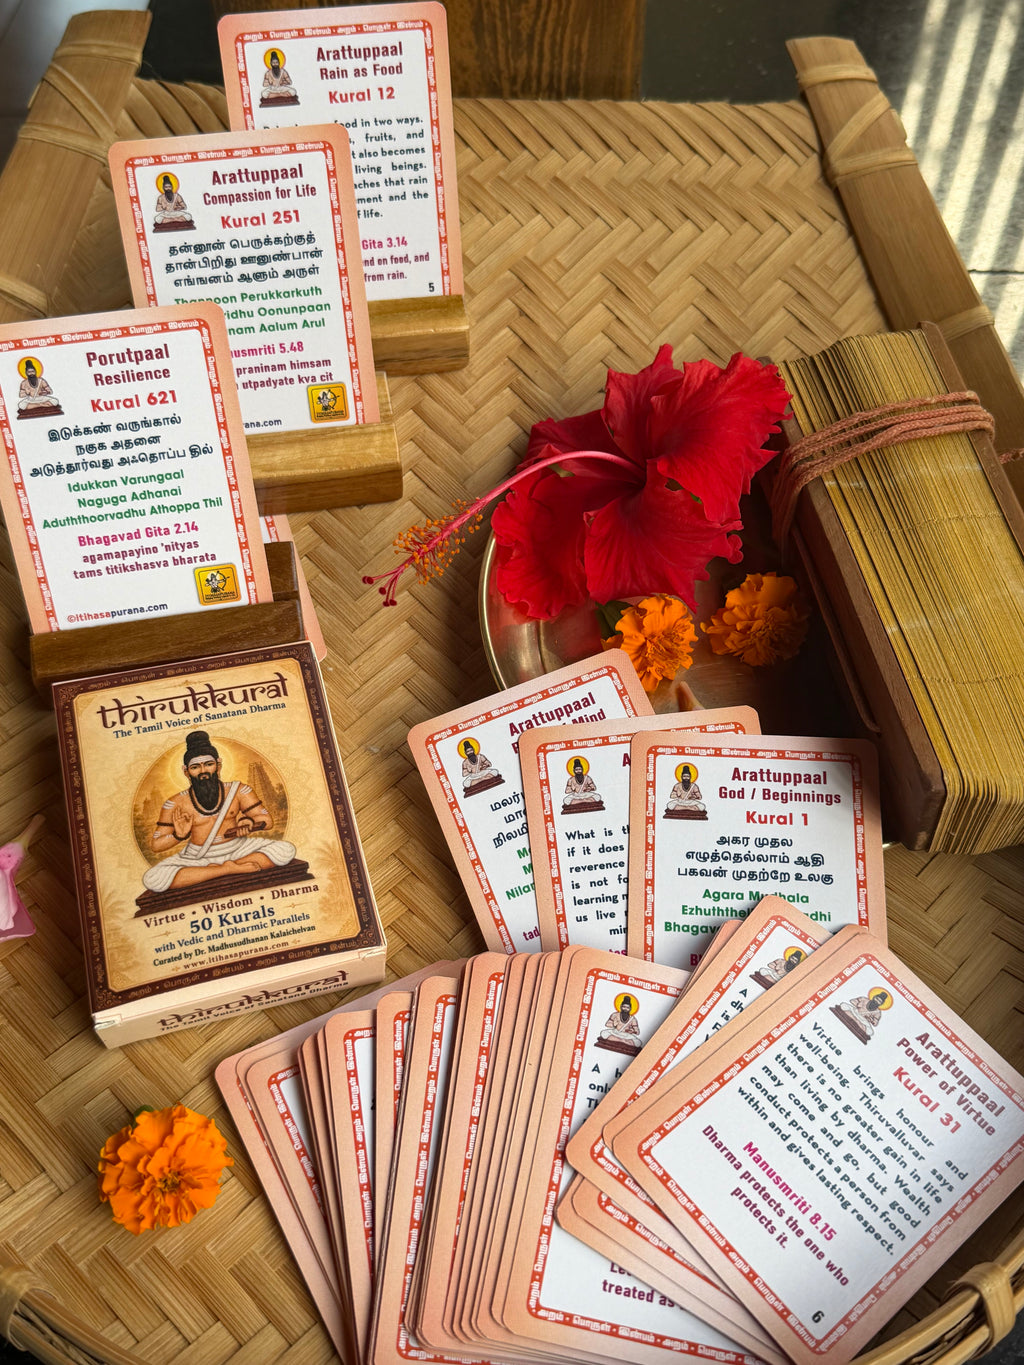 Arattuppaal
Rain as Food
Kural 12
food in two ways.
fruits, and
also becomes
living beings.
that rain
and the
of life.
Gita 3.14
on food, and
from rain.
5
Arattuppaal
Compassion for Life
Kural 251
தன்னூன் பெருக்கற்குத்
தான்பிறிது ஊனுண்பான்
எங்ஙனம் ஆளும் அருள்
Thannoon Perukkarkuth
Oonunpaan
Aalum Arul
5.48
praninam himsam
utpadyate kva cit
Porutpaal
Resilience
Kural 621
இடுக்கண் வருங்கால்
நகுக அதனை
அடுத்தூர்வது அஃதொப்ப தில்
Idukkan Varungaal
Naguga Adhanai
Aduththoorvadhu Athoppa Thil
Bhagavad Gita 2.14
agamapayino 'nityas
tams titikshasva bharata
©itihasapurana.com
thirukkural
The Tamil Voice of Sanatana Dharma
Virtue • Wisdom • Dharma
50 Kurals
with Vedic and Dharmic Parallels
Curated by Dr. Madhusudhanan Kalaichelvan
www.itihasapurana.com
thirukkural
The Tamil Voice of Sanatana Dharma
Arattuppaal
Mind
What is
if it does
reverence
is not
learning
us live
Arattuppaal
God / Beginnings
Kural 1
அகர முதல
எழுத்தெல்லாம் ஆதி
பகவன் முதற்றே உலகு
Agara Mudhala
treated as
Arattuppaal
Power of Virtue
Kural 31
Virtue brings honour and
well-being. Thiruvalluvar says
there is no greater gain in life
than living by dharma. Wealth
may come and go, but good
conduct protects a person from
within and gives lasting respect.
Manusmriti 8.15
Dharma protects the one who
protects it.
6